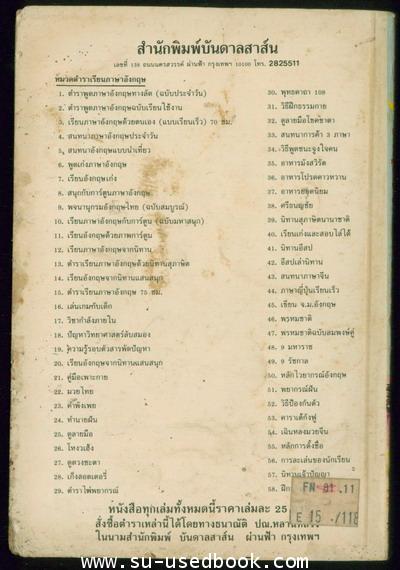 สำนักพิมพ์บันดาลสาส์น
เลขที่ 138 ถนนนครสวรรค์ ผ่านฟ้า กรุงเทพฯ 10100 โทร. 2825511
หมวดตำราเรียนภาษาอังกฤษ
1. ตำราพูดภาษาอังกฤษทางลัด (ฉบับประจำวัน)
2. ตำราพูดภาษาอังกฤษฉบับเรียนใช้งาน
3. เรียนภาษาอังกฤษด้วยตนเอง (แบบเรียนเร็ว) 70 ชม.
4. สนทนาภาษาอังกฤษประจำวัน
5. สนทนาอังกฤษแบบนำเที่ยว
6. พูดเก่งภาษาอังกฤษ
7. เรียนอังกฤษเก่ง
8. สนุกกับการ์ตูนภาษาอังกฤษ
9. พจนานุกรมอังกฤษ-ไทย (ฉบับสมบูรณ์)
10. เรียนภาษาอังกฤษกับการ์ตูน (ฉบับมหาสนุก)
11. เรียนอังกฤษด้วยภาพการ์ตูน
12. เรียนภาษาอังกฤษจากนิทาน
13. ตำราเรียนภาษาอังกฤษด้วยนิทานสุภาษิต
14. เรียนอังกฤษจากนิทานแสนสนุก
15. ตำราเรียนภาษาอังกฤษ 75 ชม.
16. เล่นเกมกับเด็ก
17. วิชากำลังภายใน
18. ปัญหาวิทยาศาสตร์ลับสมอง
19. ความรู้รอบตัวสารพัดปัญหา
20. เรียนอังกฤษจากนิทานแสนสนุก
21. คู่มือเพาะกาย
22. มวยไทย
23. คำพังเพย
24. ทำนายฝัน
25. ดูลายมือ
26. โหงวเฮ้ง
27. ดูดวงชะตา
28. เก็งลอตเตอรี่
29. ตำราไพ่พยากรณ์
30. พุทธคาถา 108
31. วิธีฝึกธรรมกาย
32. ดูลายมือโชคชาตา
33. สนทนาการค้า 3 ภาษา
34. วิธีพูดชนะจูงใจคน
35. อาหารมังสวิรัต
36. อาหารโปรดดาวหวาน
37. อาหารยอดนิยม
38. ศรีธนญชัย
39. นิทานสุภาษิตนานาชาติ
40. เรียนเก่งและสอบไล่ได้
41. นิทานอีสป
42. อีสปเล่านิทาน
43. สนทนาภาษาจีน
44. ภาษาญี่ปุ่นเรียนเร็ว
45. เขียน จ.ม.อังกฤษ
46. พรหมชาติ
47. พรหมชาติฉบับสมพงษ์คู่
48. 9 มหาราช
49. 9 รัชกาล
50. หลักไวยากรณ์อังกฤษ
51. พยากรณ์ฝัน
52. วิธีป้องกันตัว
53. คาราเต้กังฟู
54. เฉินหลงมวยจีน
55. หลักการตั้งชื่อ
56. การละเล่นของนักเรียน
57. นิทานเจ้าปัญญา
58. ฝึก
FN 81 .11
E 15 ./118
หนังสือทุกเล่มทั้งหมดนี้ราคาเล่มละ 25
สั่งซื้อตำราเหล่านี้ได้โดยทางธนาณัติ ปณ.
ในนามสำนักพิมพ์ บันดาลสาส์น ผ่านฟ้า กรุงเทพฯ
www.su-usedbook.com